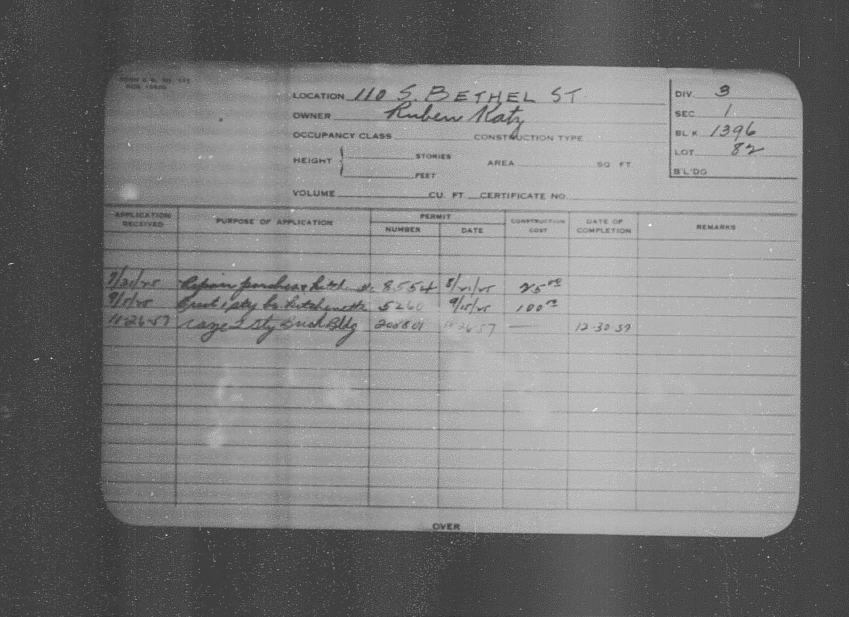 LOCATION 110 S. BETHEL ST
OWNER Ruben Katz
OCCUPANCY CLASS CONSTRUCTION TYPE
HEIGHT STORIES AREA SQ FT
FEET
VOLUME CU. FT CERTIFICATE NO.
DIV. 3
SEC 1
BLK 1396
LOT 82
B'L'DG
APPLICATION RECEIVED PURPOSE OF APPLICATION PERMIT NUMBER DATE CONSTRUCTION COST DATE OF COMPLETION REMARKS
Repair porches & 8554 25.00
Erect 1 sty kitchenette 5260 100.00
11-26-57 raze 2 sty Brick Bldg 11-26-57 — 12-30-57
OVER